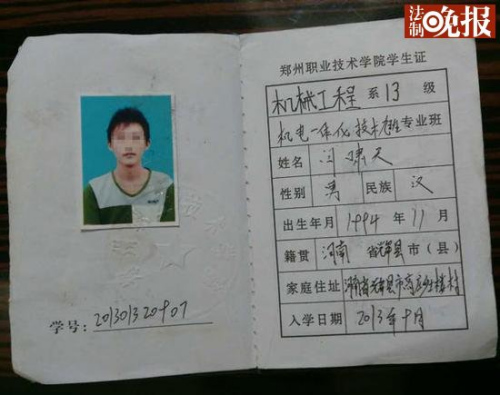 法制晚报
学号：201301320907
郑州职业技术学院学生证
机械工程 系 13 级
机电一体化技术 专业班
姓名 闫啸天
性别 男 民族 汉
出生年月 1994 年 11 月
籍贯 河南 省 辉县 市（县）
家庭住址 河南省辉县市高庄乡 村
入学日期 2013年9月